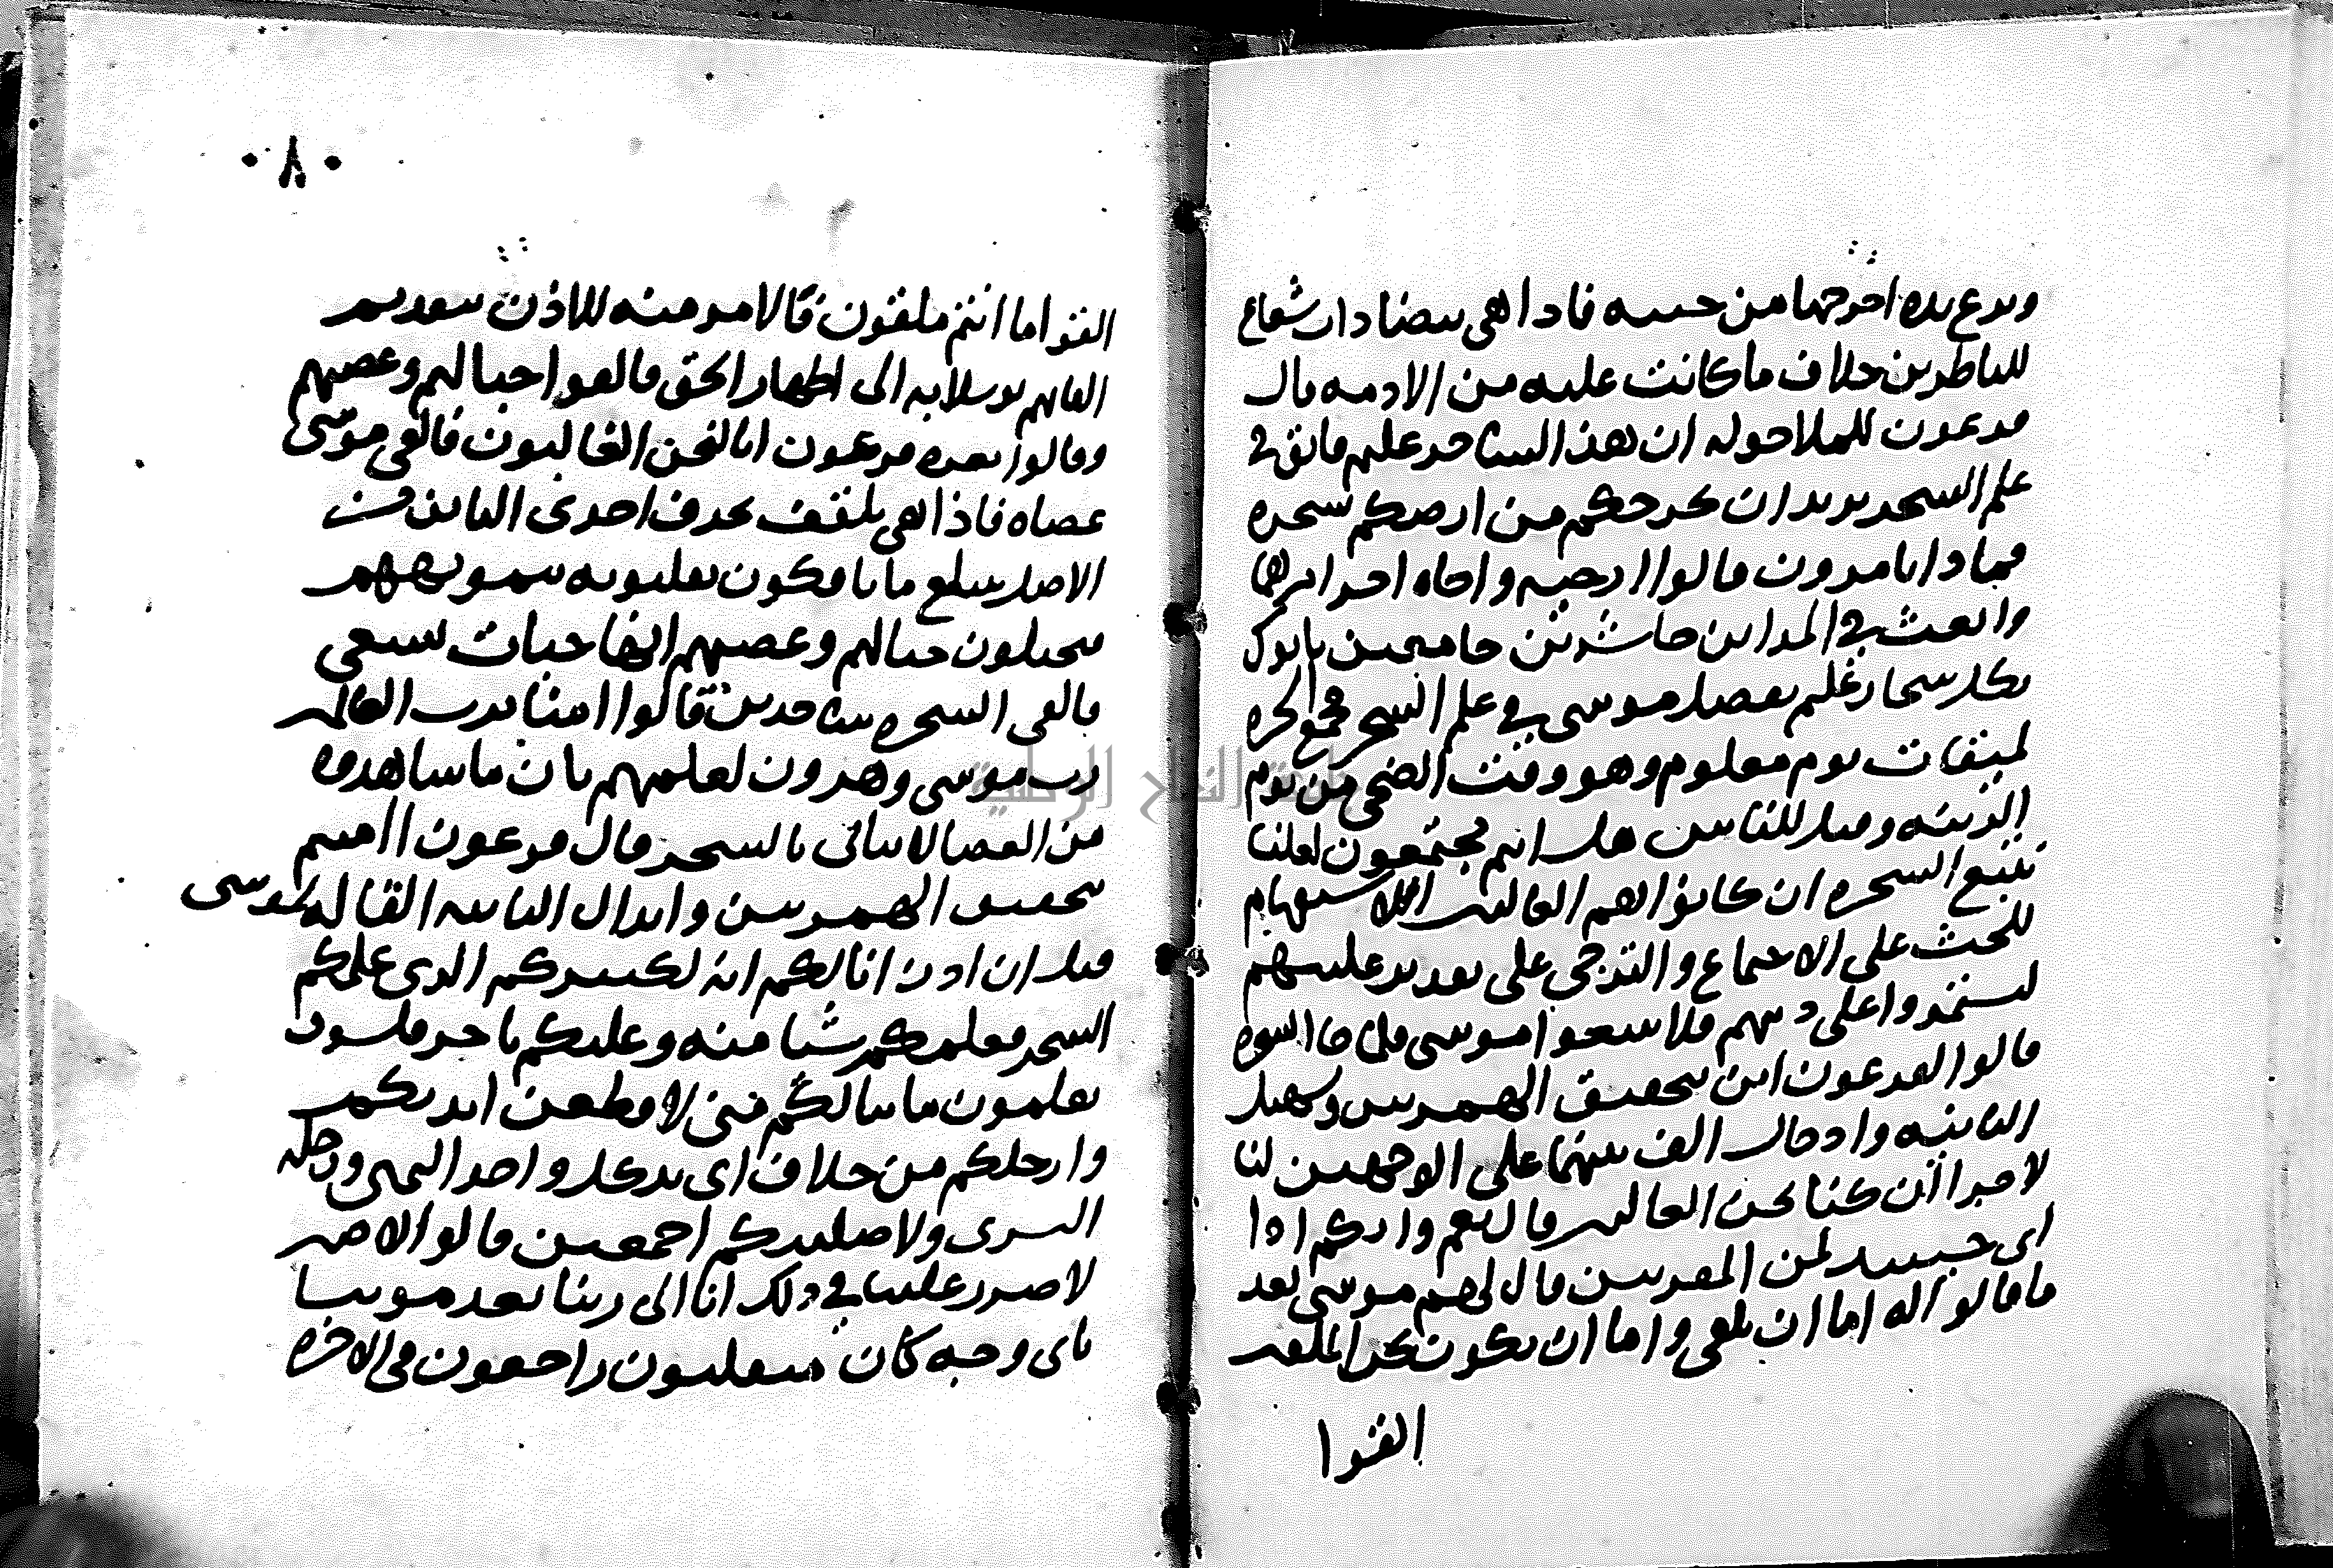 ونزع يده اخرجها من جيبه فاذا هي بيضا ذات شعاع
للناظرين خلاف ما كانت عليه من الادمه قال
فرعون للملا حوله ان هذا لساحر عليم فايق في
علم السحر يريد ان يخرجكم من ارضكم بسحره
فماذا تامرون قالوا ارجيه واخاه اخر امرهما
وابعث في المداين حاشرين جامعين ياتوك
بكل سحار عليم بفضل موسى في علم السحر فجمع السحره
لميقات يوم معلوم وهو وقت الضحى من يوم
الزينه وقيل للناس هل انتم مجتمعون لعلنا
نتبع السحره ان كانوا هم الغالبين الاستفهام
للحث على الاجتماع والترجي على تقدير غلبتهم
ليستمروا على دينهم فلا يتبعوا موسى فلما جا السحره
قالوا لفرعون اين بتحقيق الهمزتين وتسهيل
الثانيه وادخال الف بينهما على الوجهين لنا
لاجرا ان كنا نحن الغالبين قال نعم وانكم اذا
اي حينيد لمن المقربين قال لهم موسى بعد
ما قالوا له اما ان تلقي واما ان نكون نحن الملقين
القوا
٨
القوا ما انتم ملقون فالامر منه للاذن بتقديم
القايهم توسلا به الى اظهار الحق فالقوا حبالهم وعصيهم
وقالوا بعزه فرعون انا لنحن الغالبون فالقى موسى
عصاه فاذا هي تلقف بحذف احدى التاين من
الاصل تبتلع ما يافكون يقلبونه بتمويههم
فيخيلون حبالهم وعصيهم انها حيات تسعى
فالقي السحره ساجدين قالوا امنا برب العالمين
رب موسى وهرون لعلمهم بان ما شاهدوه
من العصا لا يتاتى بالسحر قال فرعون اامنتم
بتحقيق الهمزتين وابدال الثانيه الفا له لموسى
قبل ان اذن انا لكم انه لكبيركم الذي علمكم
السحر فعلمكم شيا منه وغلبكم باخر فلسوف
تعلمون ما ينالكم مني لاقطعن ايديكم
وارجلكم من خلاف اي يد كل واحد اليمنى ورجله
اليسرى ولاصلبنكم اجمعين قالوا لا ضير
لا ضرر علينا في ذلك انا الى ربنا بعد موتنا
باي وجه كان منقلبون راجعون في الاخره